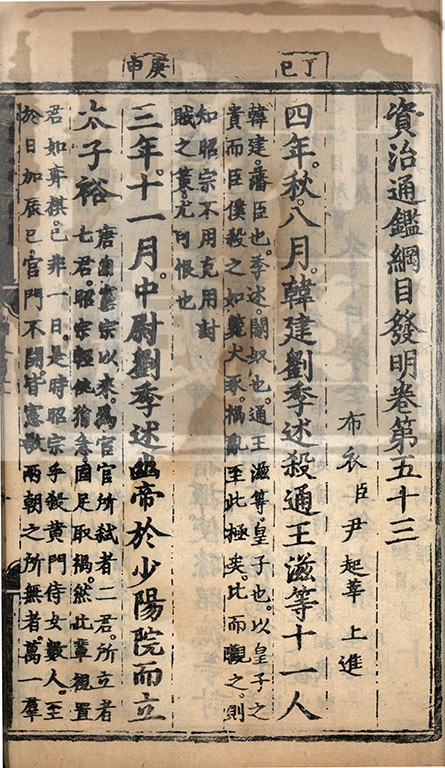 丁巳
資治通鑑綱目發明卷第五十三
布衣臣尹起莘上進
四年。秋。八月。韓建劉季述殺通王滋等十一人
韓建。藩臣也。季述。閹奴也。通王滋等。皇子也。以皇子之
貴而臣僕殺之如犬豕。禍亂至此極矣。比而觀之。則
知昭宗不用克用討
賊之策。尤可恨也
庚申
三年。十一月。中尉劉季述幽帝於少陽院而立
太子裕
唐自憲宗以來。爲宦官所弑者二君。所立者
七君。昭宗輕佻猜忌固足取禍。然此輩視置
君如弈棋。已非一日。是時昭宗手殺黄門侍女數人。至
於日加辰巳宫門不開。皆憲敬兩朝之所無者。萬一羣